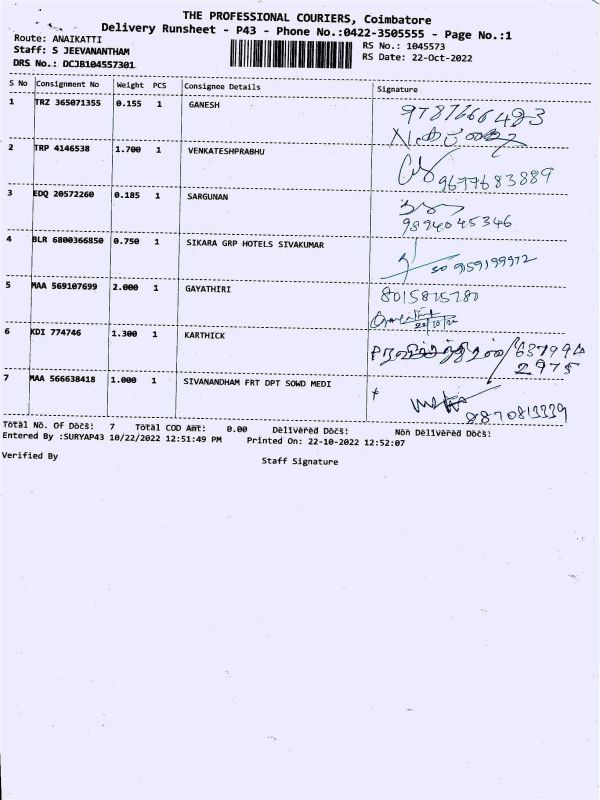 THE PROFESSIONAL COURIERS, Coimbatore
Delivery Runsheet - P43 - Phone No.:0422-3505555 - Page No.:1
Route: ANAIKATTI
Staff: S JEEVANANTHAM
DRS No.: DCJB104557301
RS No.: 1045573
RS Date: 22-Oct-2022
S No Consignment No Weight PCS Consignee Details Signature
1 TRZ 365071355 0.155 1 GANESH
2 TRP 4146538 1.700 1 VENKATESHPRABHU 9677683889
3 EDQ 20572260 0.185 1 SARGUNAN
9894045346
4 BLR 6800366850 0.750 1 SIKARA GRP HOTELS SIVAKUMAR
9159199972
5 MAA 569107699 2.000 1 GAYATHIRI 8015875780
22/10/22
6 KDI 774746 1.300 1 KARTHICK
2975
7 MAA 566638418 1.000 1 SIVANANDHAM FRT DPT SOWD MEDI
8870813339
Total No. Of Docs: 7 Total COD Amt: 0.00 Delivered Docs: Non Delivered Docs:
Entered By :SURYAP43 10/22/2022 12:51:49 PM Printed On: 22-10-2022 12:52:07
Verified By Staff Signature